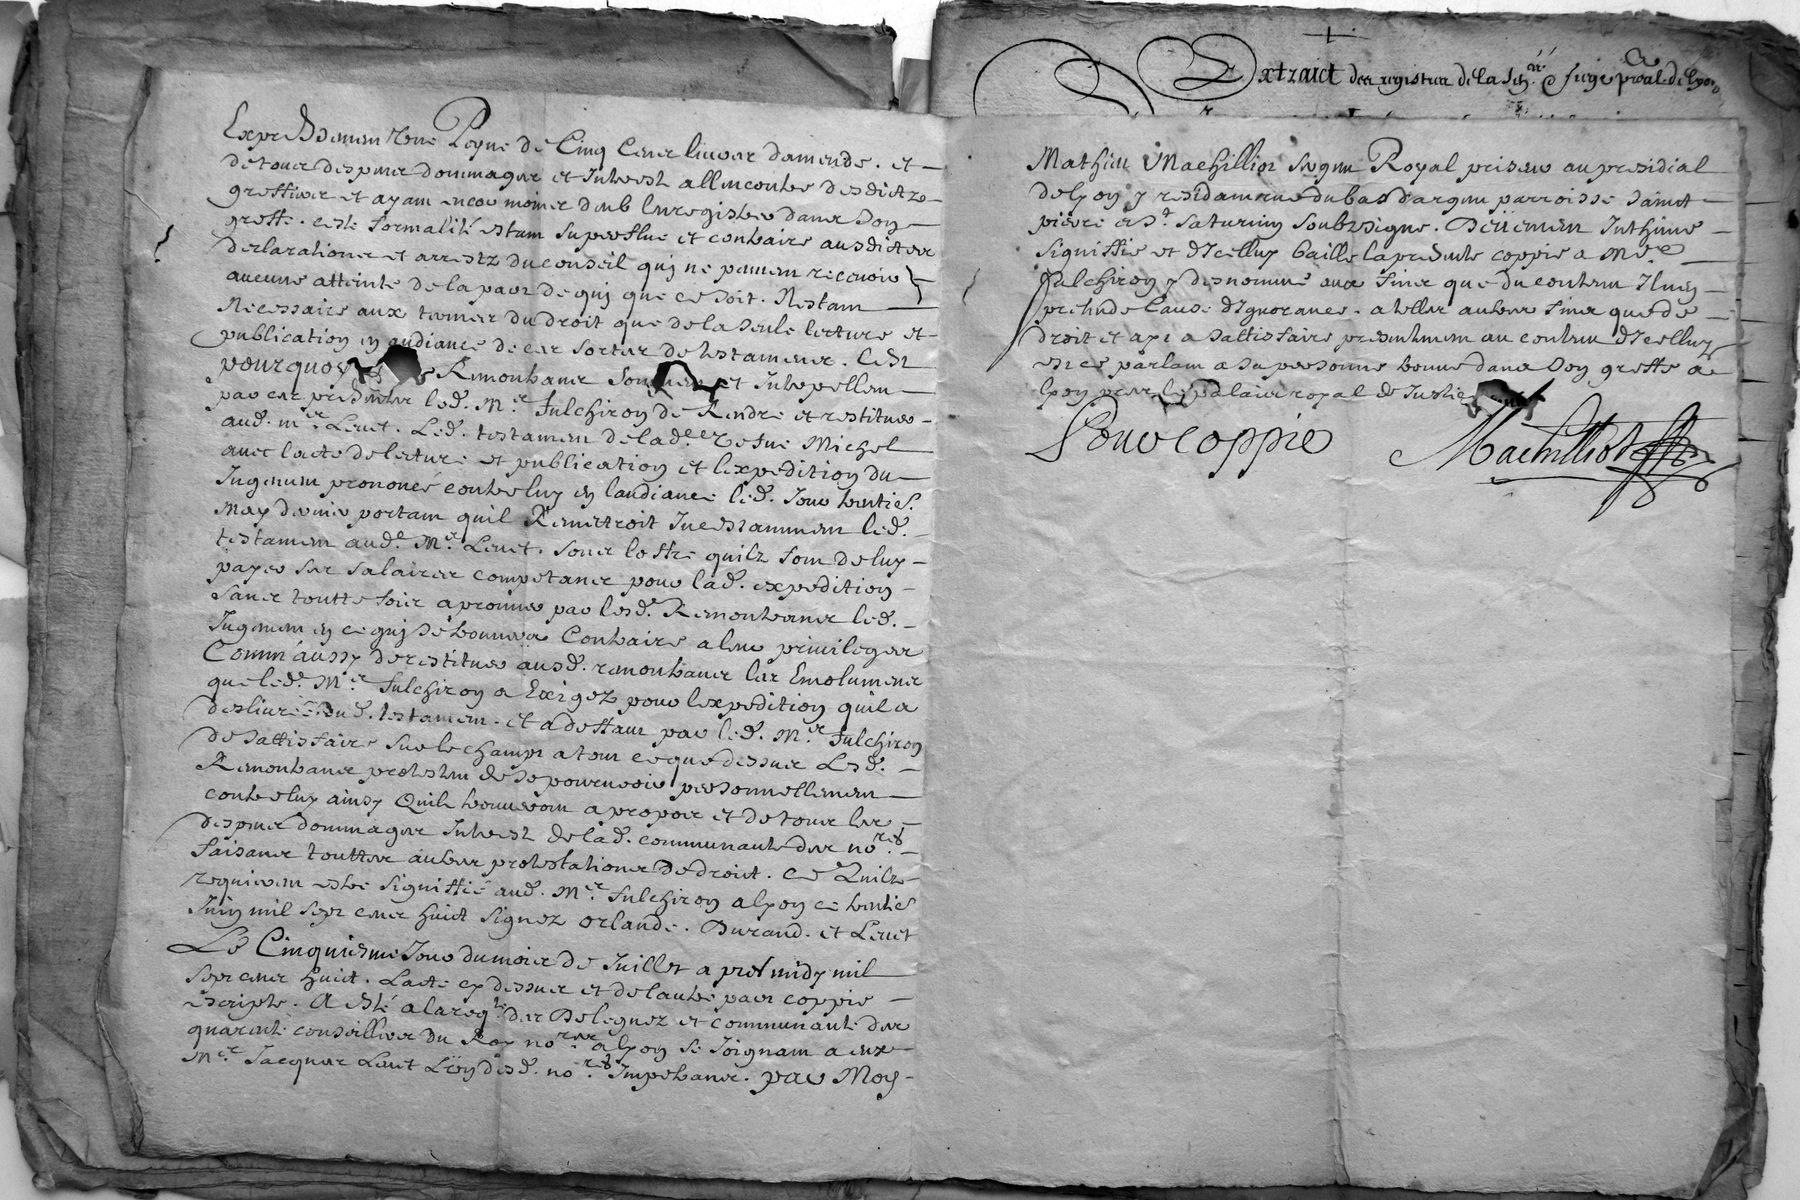 Expressemen Soue Peyne de Cinq Cens liures damende . et
de tous despens dommages et Interestz allencontre desdictz
greffiers et ayans encore moins deub lenregistrer dans son
greffe . ceste formalité estant superflue et contraire ausdictes
declarations et arrestz du conseil quj ne peuuent receuoir
aucune atteinte de la part de quj que ce soit . Nestant
Necessaire aux termes du droit que de la seule lecture et
publication en audiance de ces sortes de testamens . Cest
pourquoy Remonstrans Somment et Interpellent
par ces presentes led. Mr. fulchiron de Rendre et restituer
aud. mr. Leuet . Led. testament de lad. feue Michel
auec lacte de lecture et publication et lexpedition du
Jugement prononcé contre luy en laudiance led. Jour trentie.
May dernier portant quil Remettroit Incessamment led.
testament aud. Mr. Leuet . sous loffre quilz font de luy
payer ses salaires competans pour lad. expedition
sans touttefois aprouuer par lesd. Remonstrans led.
Jugement en ce quj se trouuera Contraire a leurs priuileges
Comm'aussy de restituer ausd. remonstrans les Emolumens
que led. Mr. fulchiron a Exigez pour lexpedition quil a
desliuré dud. testament . et a deffaut par led. Mr. fulchiron
de sattisfaire sur le champs a tout ce que dessus Lesd.
Remonstrans protestent de se pouruoir personnellement
contre luy ainsy Quilz trouueront a propos et de tous les
despens dommages Interestz de lad. communauté des nores.
faisans touttes autres protestations de droict . Ce Quilz
requierent estre signiffié aud. Mr. fulchiron a lyon ce trentie
Juin mil sept cens huict signez Orlande . Durand . et Leuet
Le Cinquiesme Jour du mois de Juillet a pres midy mil
sept cens huict . Lacte cy dessus et de lautre part coppie
escripte . A esté a la reqte. des Deleguez et communauté des
quarente conseillers du Roy nores a lyon se Joignant a eux
Mr. Jacques Leuet L'un desd. nores. Impetrans . par Moy
Extraict des registres de la Sen.ée & siege pnal de lyon
Mathieu Machilliot sergent Royal priseur au presidial
de lyon y residant rue du bas dargent parroisse saint
pierre et St. Saturnin soubzsigné . Deüement Inthimé
signiffié et d'Icelluy baillé la presente coppie a Mr.
fulchiron y desnommé aux fins que du contenu Il n'en
pretende Cause d'Ignorance . a telles autres fins que de
droit et aye a sattisfaire presentement au contenu d'Icelluy
et ce parlant a sa personne trouué dans son greffe a
lyon pres le palais royal de Justice
Pour coppie
Machilliot